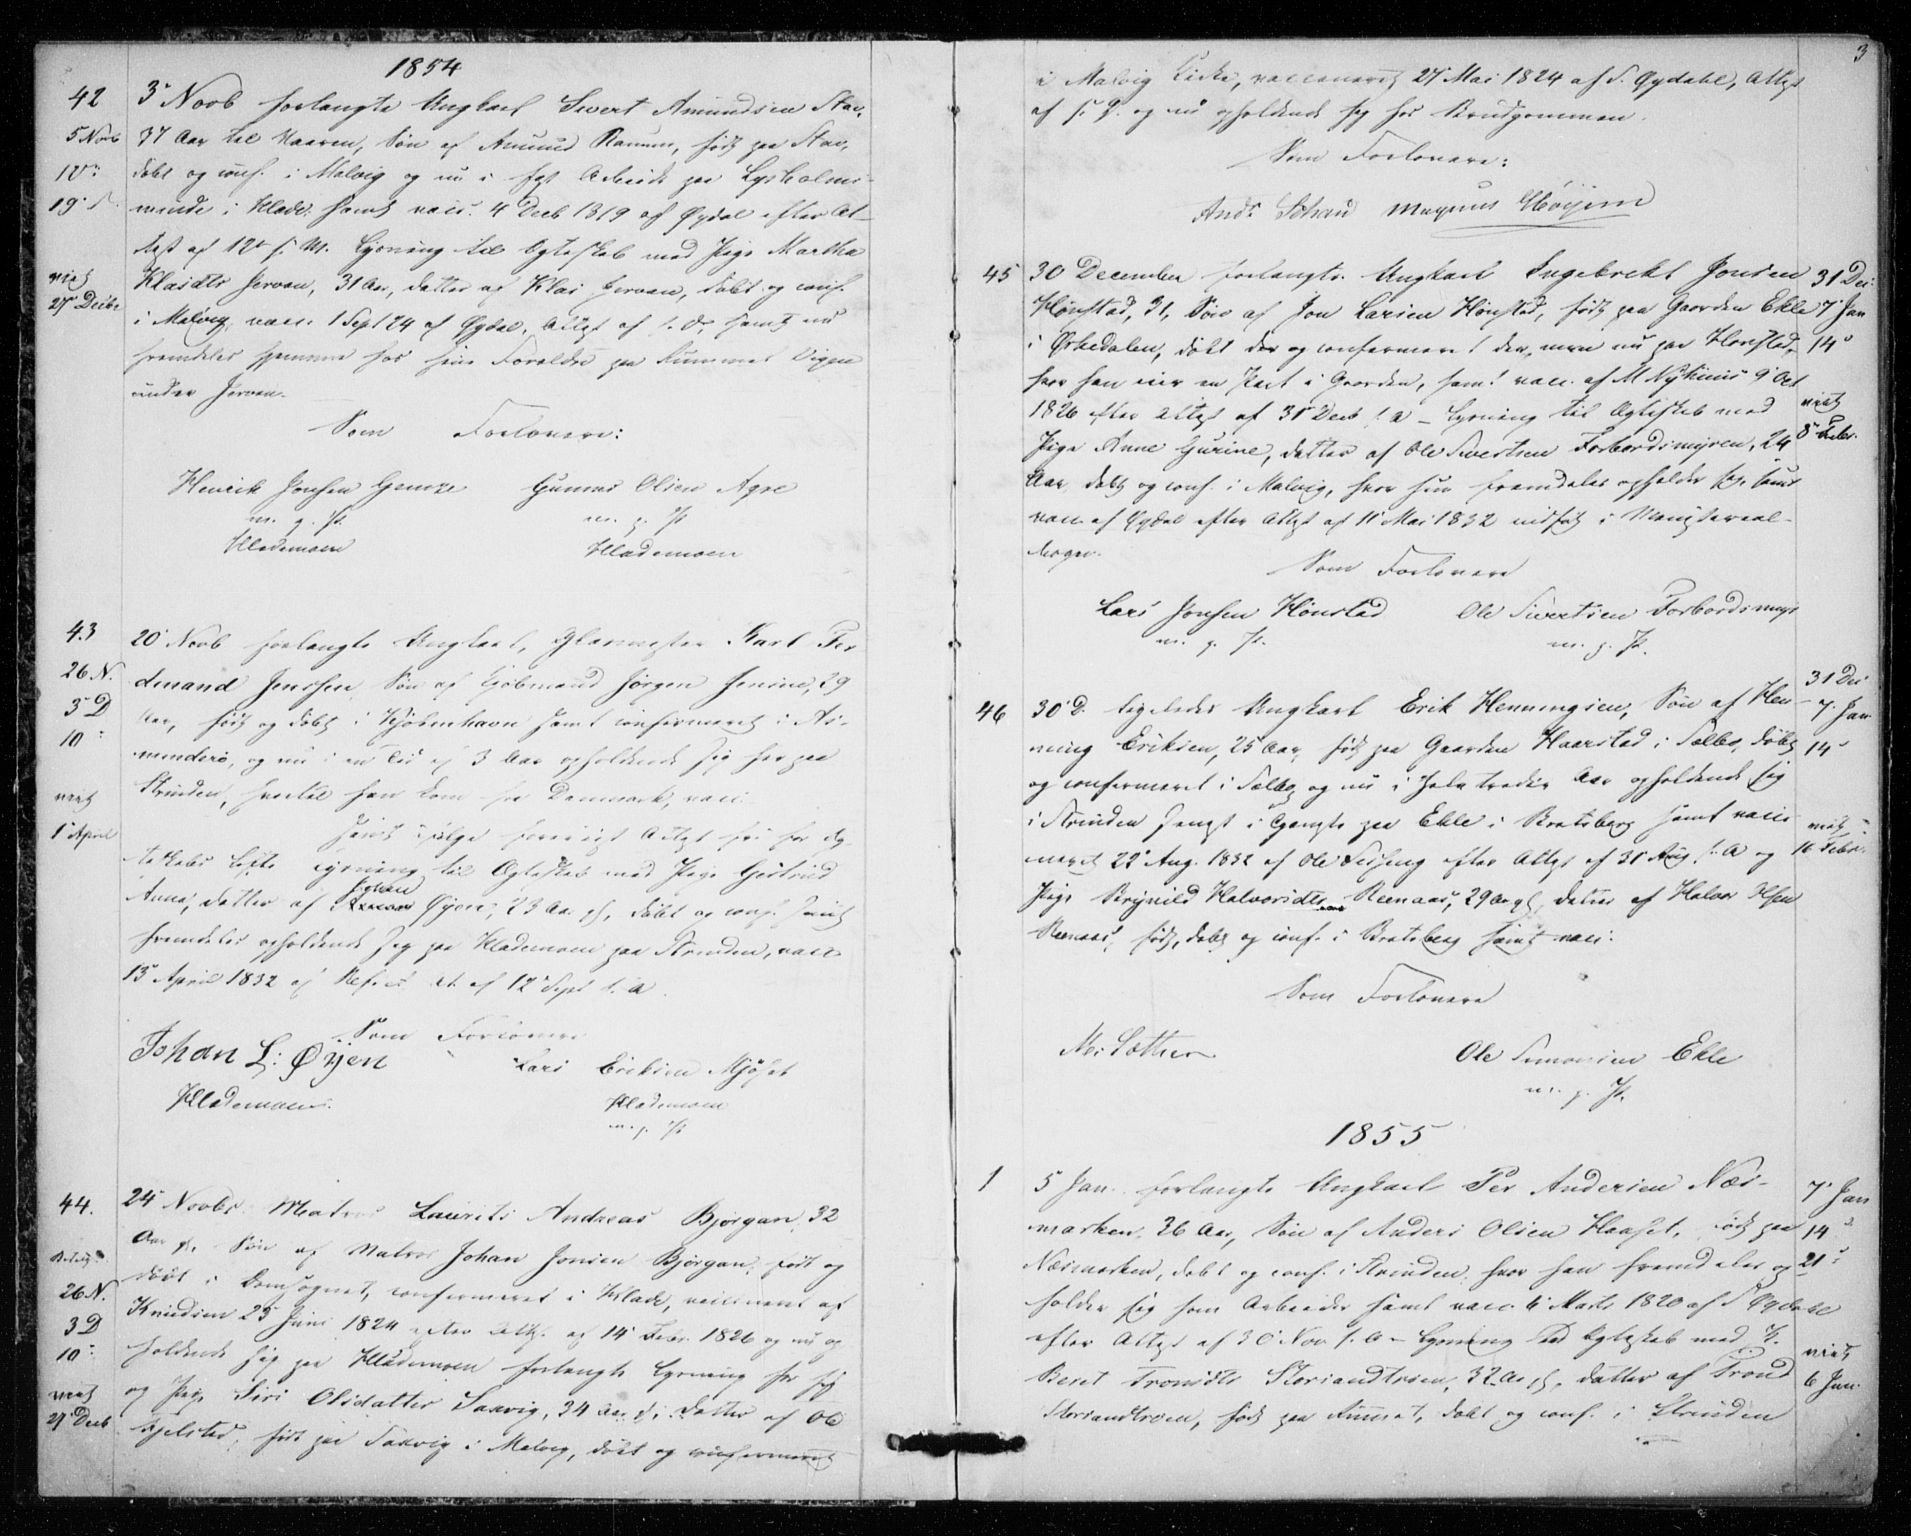 1854
42
3 Novb forlangte Ungkarl Sivert Amundsen Stav,
5 Novb
37 Aar til Haaren, Søn af Amund Ranum, født paa Stav,
12"
døbt og conf. i Malvig og nu i fast Arbeide paa Lysholms-
19" d.
minde i Hlade, samt vacc. 4 Decb 1819 af Øydal efter At-
test af 12t f. M. Lysning til Ægteskab med Pige Martha
viet
Klasdtr Jervan, 31 Aar, datter af Klas Jervan, døbt og conf.
27 Decbr
i Malvig, vacc. 1 Sept 24 af Øydal, Attest af s. D. samt nu
fremdeles hjemme hos sine Forældre paa Rummet Vigen
under Jervan.
Som Forlovere:
Henrik Jonsen Gemze Gunnar Olsen Agre
m. p. P. m. p. P.
Hlademoen Hlademoen
43
20 Novb forlangte Ungkarl, Glasmester Karl Fer
26 N.
dinand Jenssen, Søn af Kjøbmand Jørgen Jensen, 29
3 D
Aar, født og døbt i Kjøbenhavn samt confirmeret i As-
10"
minderø, og nu i en Tid af 3 Aar opholdende sig her paa
viet
Strinden, hvortil han kom fra Danmark, vacc.
1 April
samt ifølge foreviist Attest fri for Æg
teskabs Løfte Lysning til Ægteskab med Pige Gjertrud
Anna, datter af Johan Øyen, 23 Aar gl., døbt og conf. samt
fremdeles opholdende sig paa Hlademoen paa Strinden, vacc
13 April 1832 af
af 12 Sept s. A.
Som Forlovere
Johan L: Øÿen Lars Eriksen Mjøset
Hlademoen. Hlademoen
m. p. P.
44.
24 Novbr Matros Laurits Andreas Bjørgan, 32
Aar gl. Søn af Matros Johan Jonsen Bjørgan, født og
26 N.
døbt i Domsognet, confirmeret i Hlade, vaccineret af
3 D
Knudsen 25 Juni 1824 efter Att. af 14 Febr. 1826 og nu op
10"
holdende sig paa Hlademoen forlangte Lysning for sig
viet
og Pige Siri Olsdatter Saxvig, 34 Aar gl. datter af Ole
27 Decb
Hjelstad, født paa Saxvig i Malvig, døbt og confirmeret
3
i Malvig Kirke, vaccineret 27 Mai 1824 af S. Øydahl, Attest
af s. D. og nu opholdende sig hos Brudgommen.
Som Forlovere:
Ands Schau Magnus Høyem
45
30 December forlangte Ungkarl Ingebrekt Jonsen
31 Dec:
Hønstad, 31, Søn af Jon Larsen Hønstad, født paa Gaarden Ekle
7 Jan
i Ørkedalen, døbt der og confirmeret der, men nu paa Hønstad,
14"
hvor han eier en Part i Gaarden, samt vacc. af M Nyhuus 9 Oct
1826 efter Attest af 31 Decb s. A – Lysning til Ægteskab med
viet
Pige Anne Gurine, datter af Ole Sivertsen Forbordsmyren, 24
8 Febr.
Aar, døbt og conf. i Malvig, hvor hun fremdeles opholder sig, samt
vacc. af Øydal efter Attest af 11 Mai 1832 indført i Ministerial-
bogen.
Som Forlovere
Lars Jonsen Hønstad Ole Sivertsen Forbordsmyr
m. p. P. m. p. P.
46
30 D. ligeledes Ungkarl Erik Henningsen, Søn af Hen-
31 Dec
7. Jan
ning Eriksen, 25 Aar, født paa Gaarden Haarstad i Sælbo, døbt
14"
og confirmeret i Sælbo og nu i hele tredie Aar opholdende sig
i Strinden i Tjeneste paa Ekle i Bratsberg samt vacci
viet
neret 22 Aug. 1832 af Ole efter Attest af 31 Aug. s. A og
16 Febr.
Pige Brynild Halvorsdtr Reenaas, 29 Aar gl. datter af Halvor Olsen
Reenaas, født, døbt og conf. i Bratsberg samt vacc.
Som Forlovere
Ms Sæther Ole Simonsen Ekle
m. p. P.
1855
1
5 Jan. forlangte Ungkarl Per Andersen Næs-
7 Jan
marken, 36 Aar, Søn af Anders Olsen Haaset, født paa
14"
Næsmarken, døbt og conf. i Strinden, hvor han fremdeles op
21"
holder sig som Arbeider samt vacc. 6 Marts 1820 af S Øydahl
efter Attest af 30 Nov. s. A – Lysning til Ægteskab med P.
viet
Beret Trondsdtr Storsandtrøen, 32 Aar gl., datter af Trond
6 Jun.
Storsandtrøen, født paa Rummet, døbt og conf. i Strinden